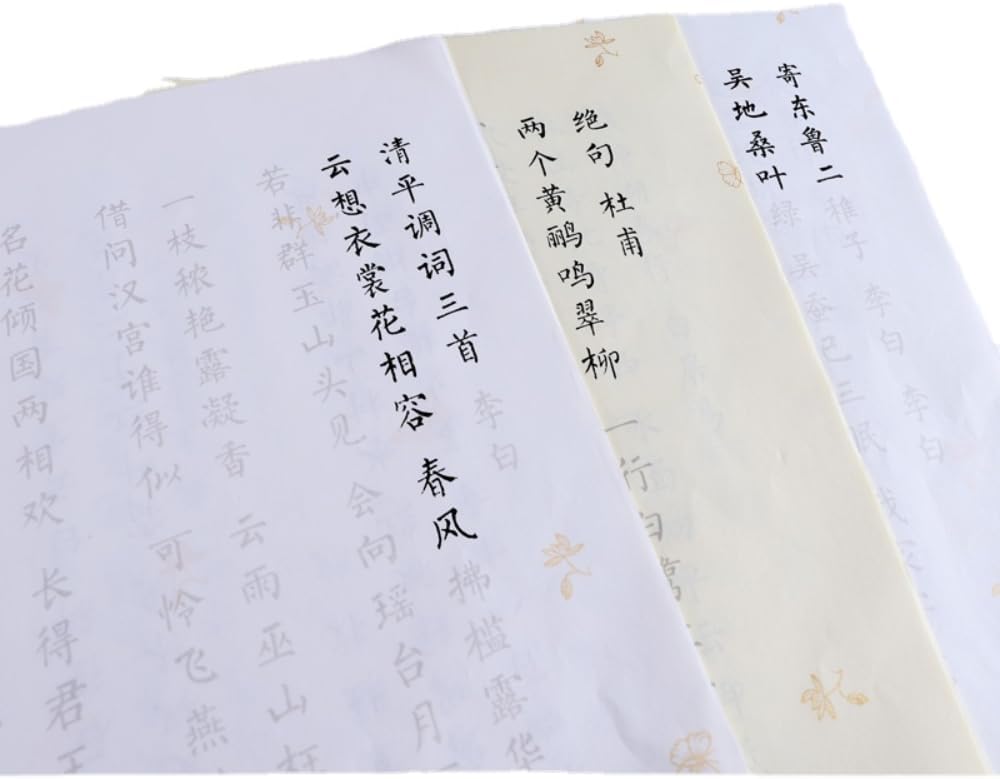 清平调词三首 李白
云想衣裳花相容 春风拂槛露华
若非群玉山头见 会向瑶台月
一枝秾艳露凝香 云雨巫山枉
借问汉宫谁得似 可怜飞燕
名花倾国两相欢 长得君王
绝句 杜甫
两个黄鹂鸣翠柳 一行白鹭
寄东鲁二稚子 李白 李白
吴地桑叶绿 吴蚕已三眠 我家